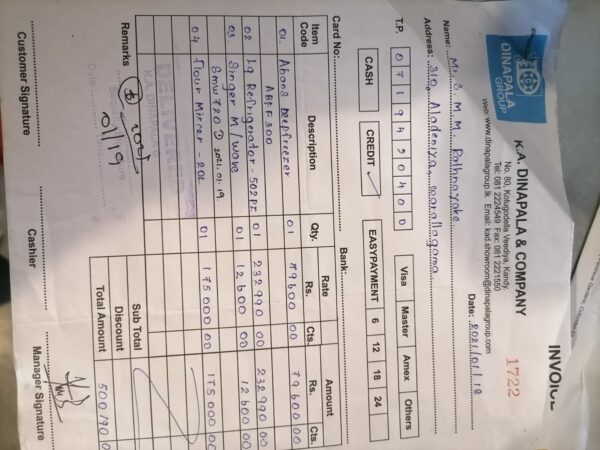 INVOICE
1722
DINAPALA
GROUP
K.A. DINAPALA & COMPANY
No. 80, Kotugodella Veediya, Kandy.
Tel: 081 2224549 Fax: 081 2221550
Web: www.dinapalagroup.lk Email: kad.showroom@dinapalagroup.com
Date: 2021/01/18
Name: Mr. S. M. M. Rathnayake
Address: 310, Aladeniya,
T.P. 0719490400
Visa Master Amex Others
CASH CREDIT ✓ EASYPAYMENT 6 12 18 24
Card No: Bank:
Item Code Description Qty. Rate Rs. Cts. Amount Rs. Cts.
01. Abans Deepfreezer 01 79600 00 79600 00
ABFF 300
02 Lg Refrigerator 502 01 232990 00 232990 00
03 Singer M/wave 01 12600 00 12600 00
2021.01.19
04 Flour Mixrer - 20L 01 175000 00 175000 00
Sub Total
Discount
Remarks Total Amount 500190 0
01/19
K.A. DINAPALA
Customer Signature Cashier Manager Signature